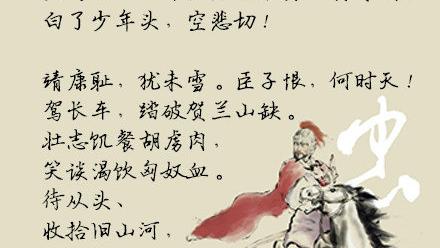 白了少年头，空悲切！
靖康耻，犹未雪。臣子恨，何时灭！
驾长车，踏破贺兰山缺。
壮志饥餐胡虏肉，
笑谈渴饮匈奴血。
待从头、
收拾旧山河，
忠